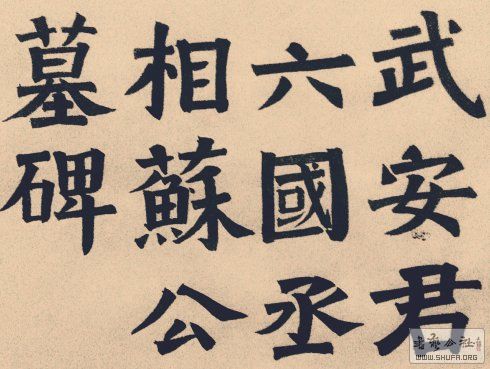 武安君
六國丞
相蘇公
墓碑
WWW.SHUFA.ORG